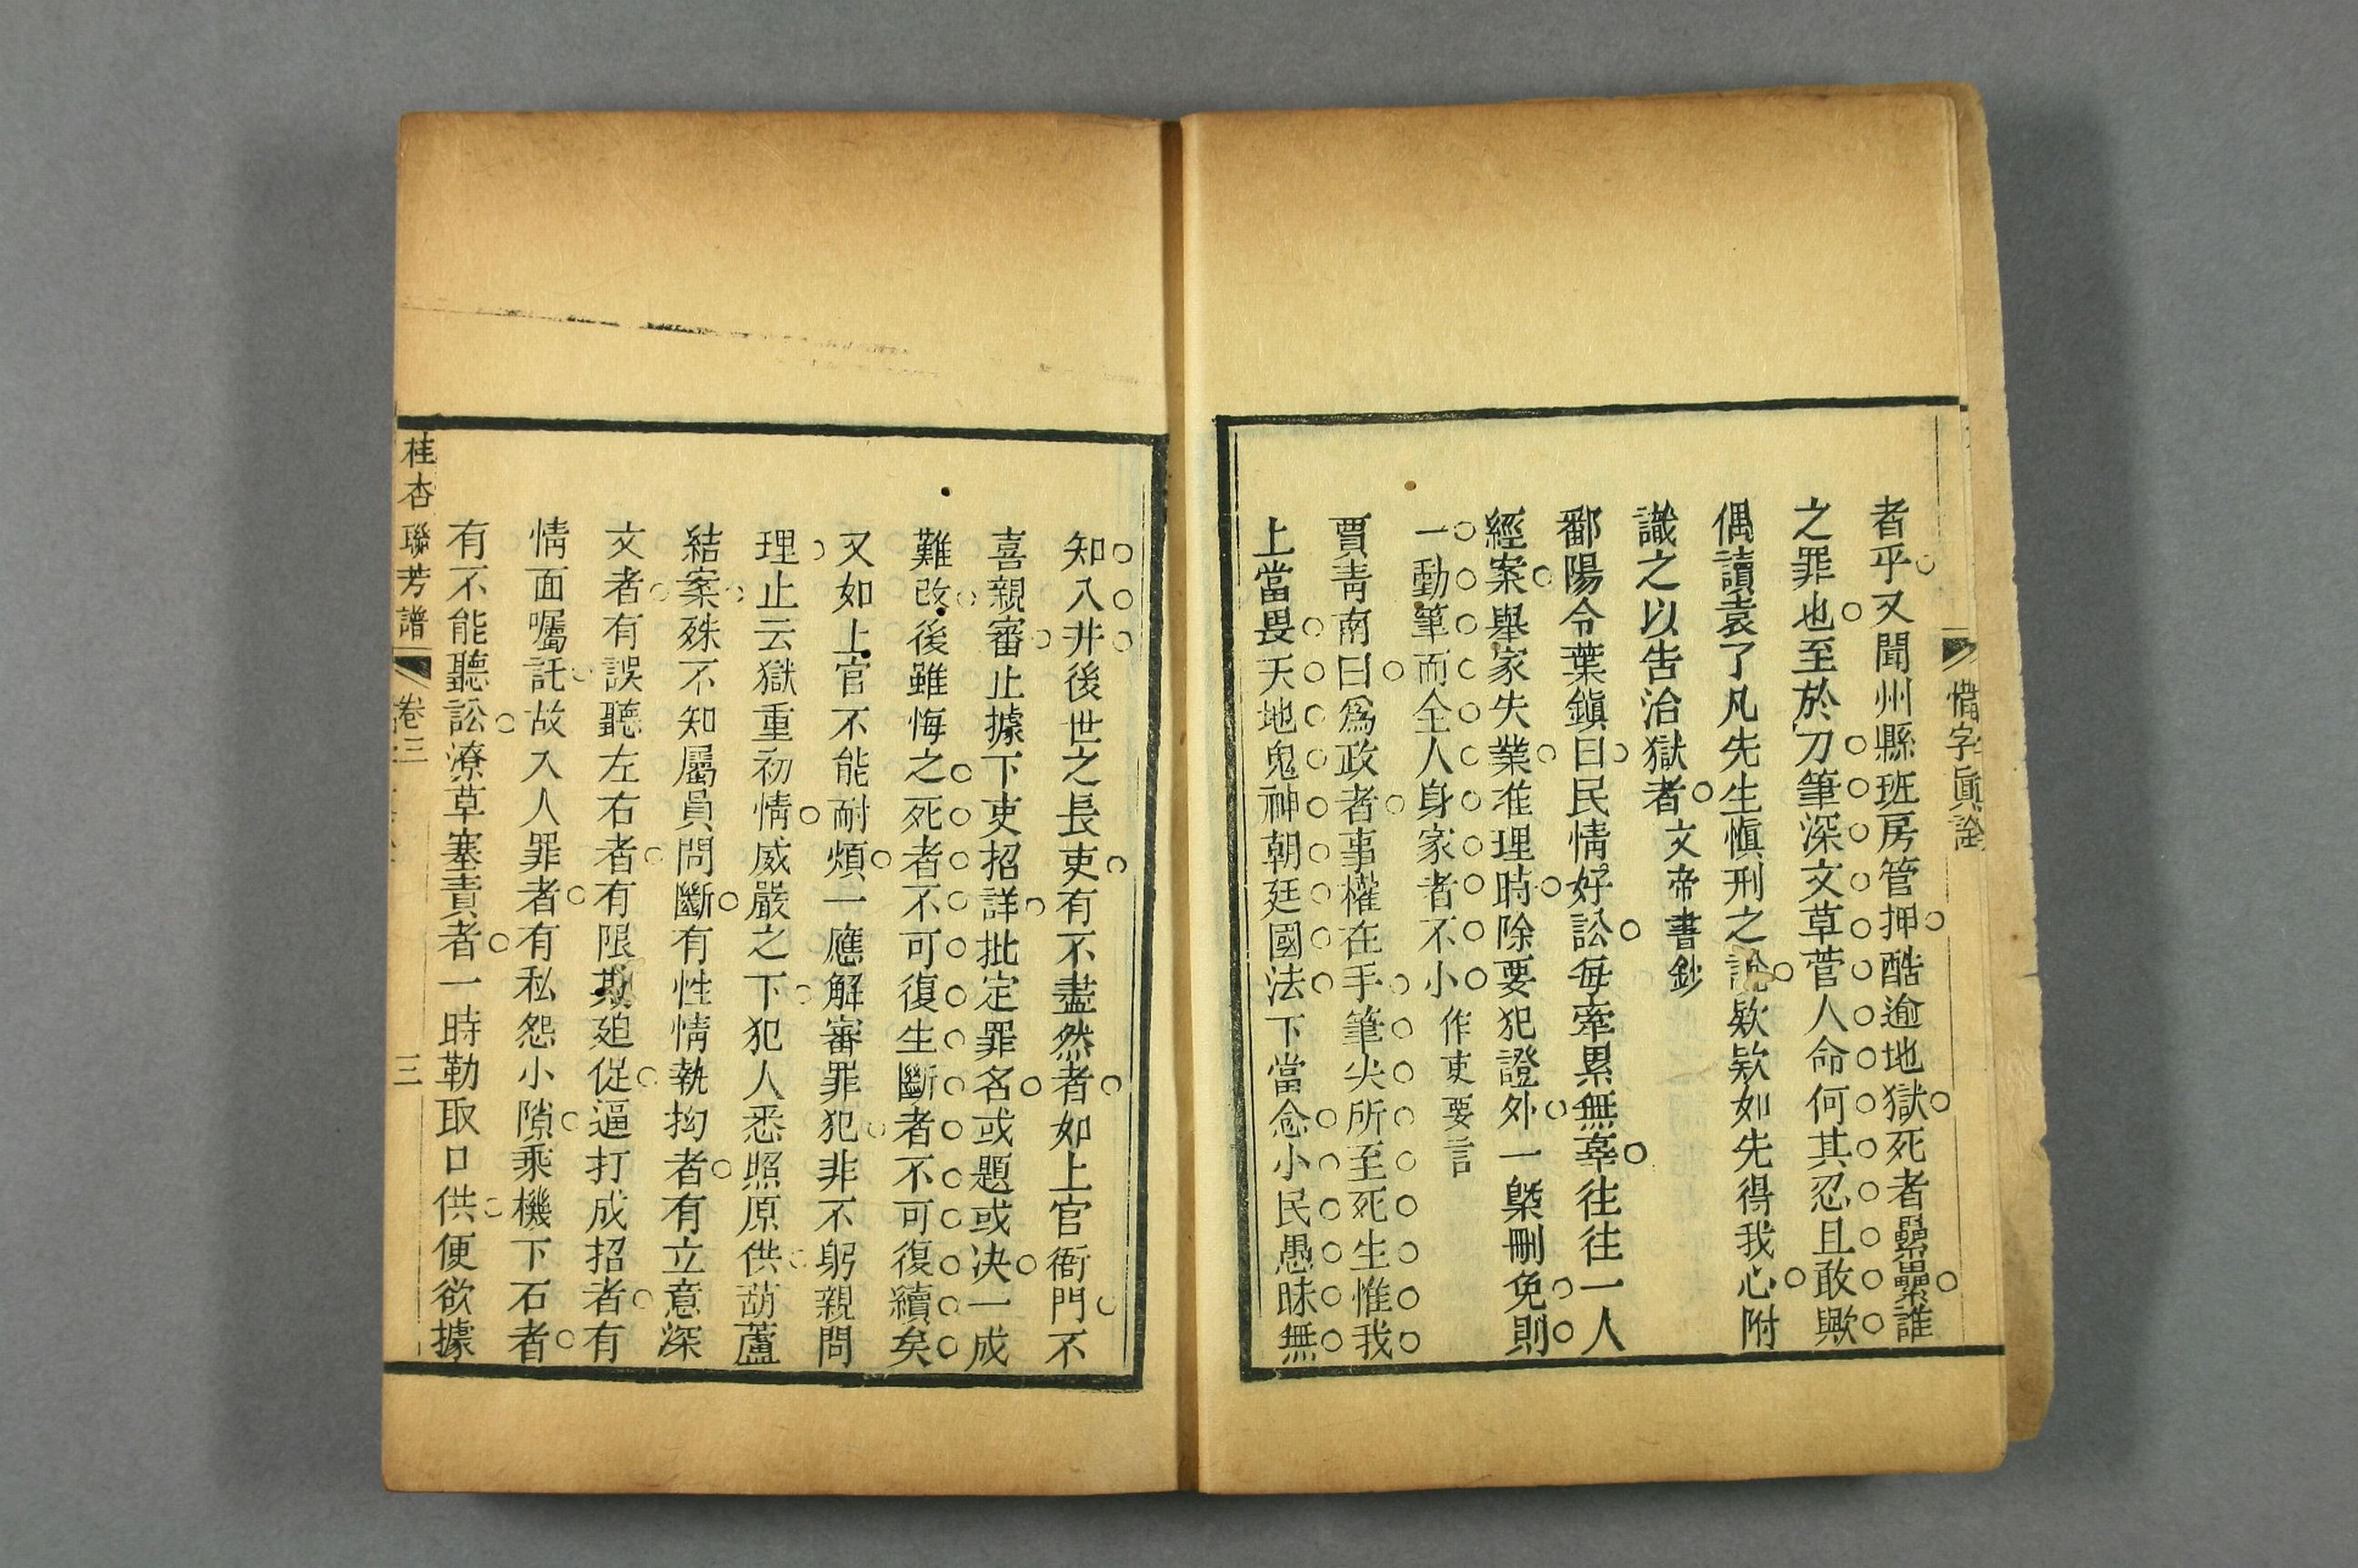 惜字眞詮
者乎又聞州縣班房管押酷逾地獄死者纍纍誰
之罪也至於刀筆深文草菅人命何其忍且敢歟
偶讀袁了凡先生慎刑之說欵欵如先得我心附
識之以告治獄者文帝書鈔
鄱陽令葉鎭曰民情好訟每牽累無辜往往一人
經案舉家失業准理時除要犯證外一槩刪免則
一動筆而全人身家者不小作吏要言
賈青南曰爲政者事權在手筆尖所至死生惟我
上當畏天地鬼神朝廷國法下當念小民愚昧無
知入井後世之長吏有不盡然者如上官衙門不
喜親審止據下吏招詳批定罪名或題或決一成
難改後雖悔之死者不可復生斷者不可復續矣
又如上官不能耐煩一應解審罪犯非不躬親問
理止云獄重初情威嚴之下犯人悉照原供葫蘆
結案殊不知屬員問斷有性情執拘者有立意深
文者有誤聽左右者有限期廹促逼打成招者有
情面囑託故入人罪者有私怨小隙乘機下石者
有不能聽訟潦草塞責者一時勒取口供便欲據
桂杏聯芳譜 卷三 三